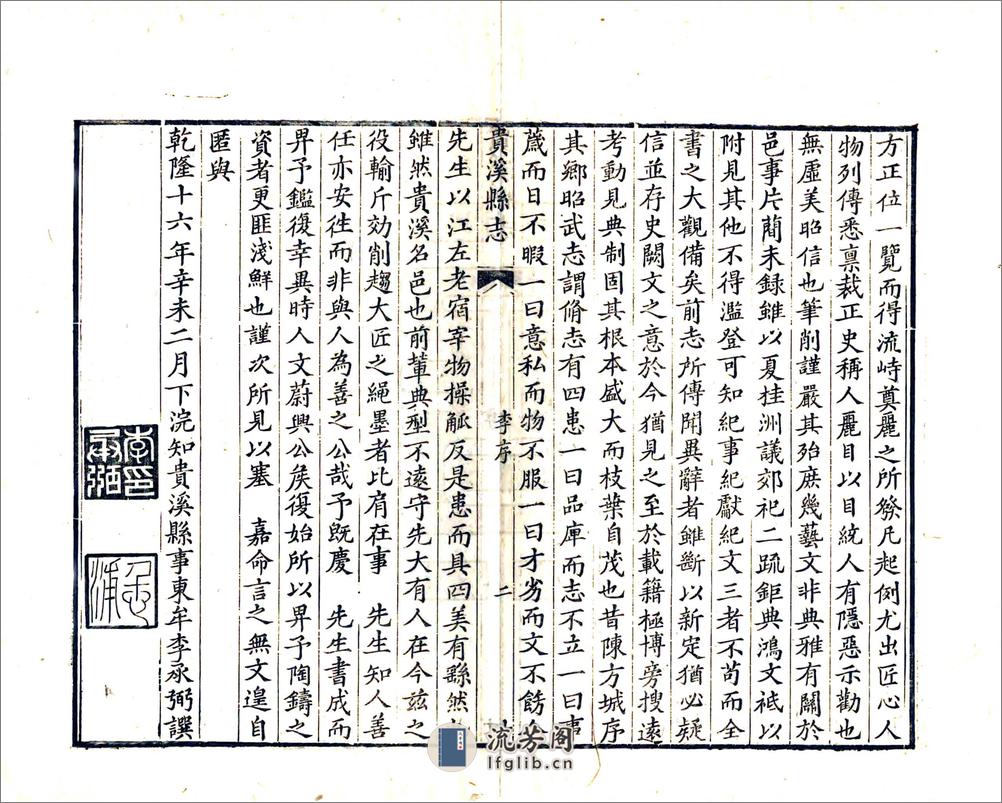 方正位一覽而得流峙奠麗之所發凡起例尤出匠心人
物列傳悉稟裁正史稱人麗目以目統人有隱惡示勸也
無虛美昭信也筆削謹嚴其殆庶幾藝文非典雅有關於
邑事片蕳末録雖以夏桂洲議郊祀二疏鉅典鴻文祗以
附見其他不得濫登可知紀事紀獻紀文三者不苟而全
書之大觀備矣前志所傳聞異辭者雖斷以新定猶必疑
信並存史闕文之意於今猶見之至於載籍極博旁搜遠
考動見典制固其根本盛大而枝葉自茂也昔陳方城序
其鄉昭武志謂脩志有四患一曰品庳而志不立一曰事
蕆而日不暇一曰意私而物不服一曰才劣而文不餝
貴溪縣志
李序
二
先生以江左老宿宰物操觚反是患而具四美有繇然
雖然貴溪名邑也前軰典型不遠守先大有人在今兹之
役輸斤効削趨大匠之繩墨者比肩在事 先生知人善
任亦安徃而非與人為善之公哉予既慶 先生書成而
畀予鑑復幸異時人文蔚興公矦復始所以畀予陶鑄之
資者更匪淺鮮也謹次所見以塞 嘉命言之無文遑自
匿與
乾隆十六年辛未二月下浣知貴溪縣事東牟李承弼譔
李承弼印
流芳阁
lfglib.cn